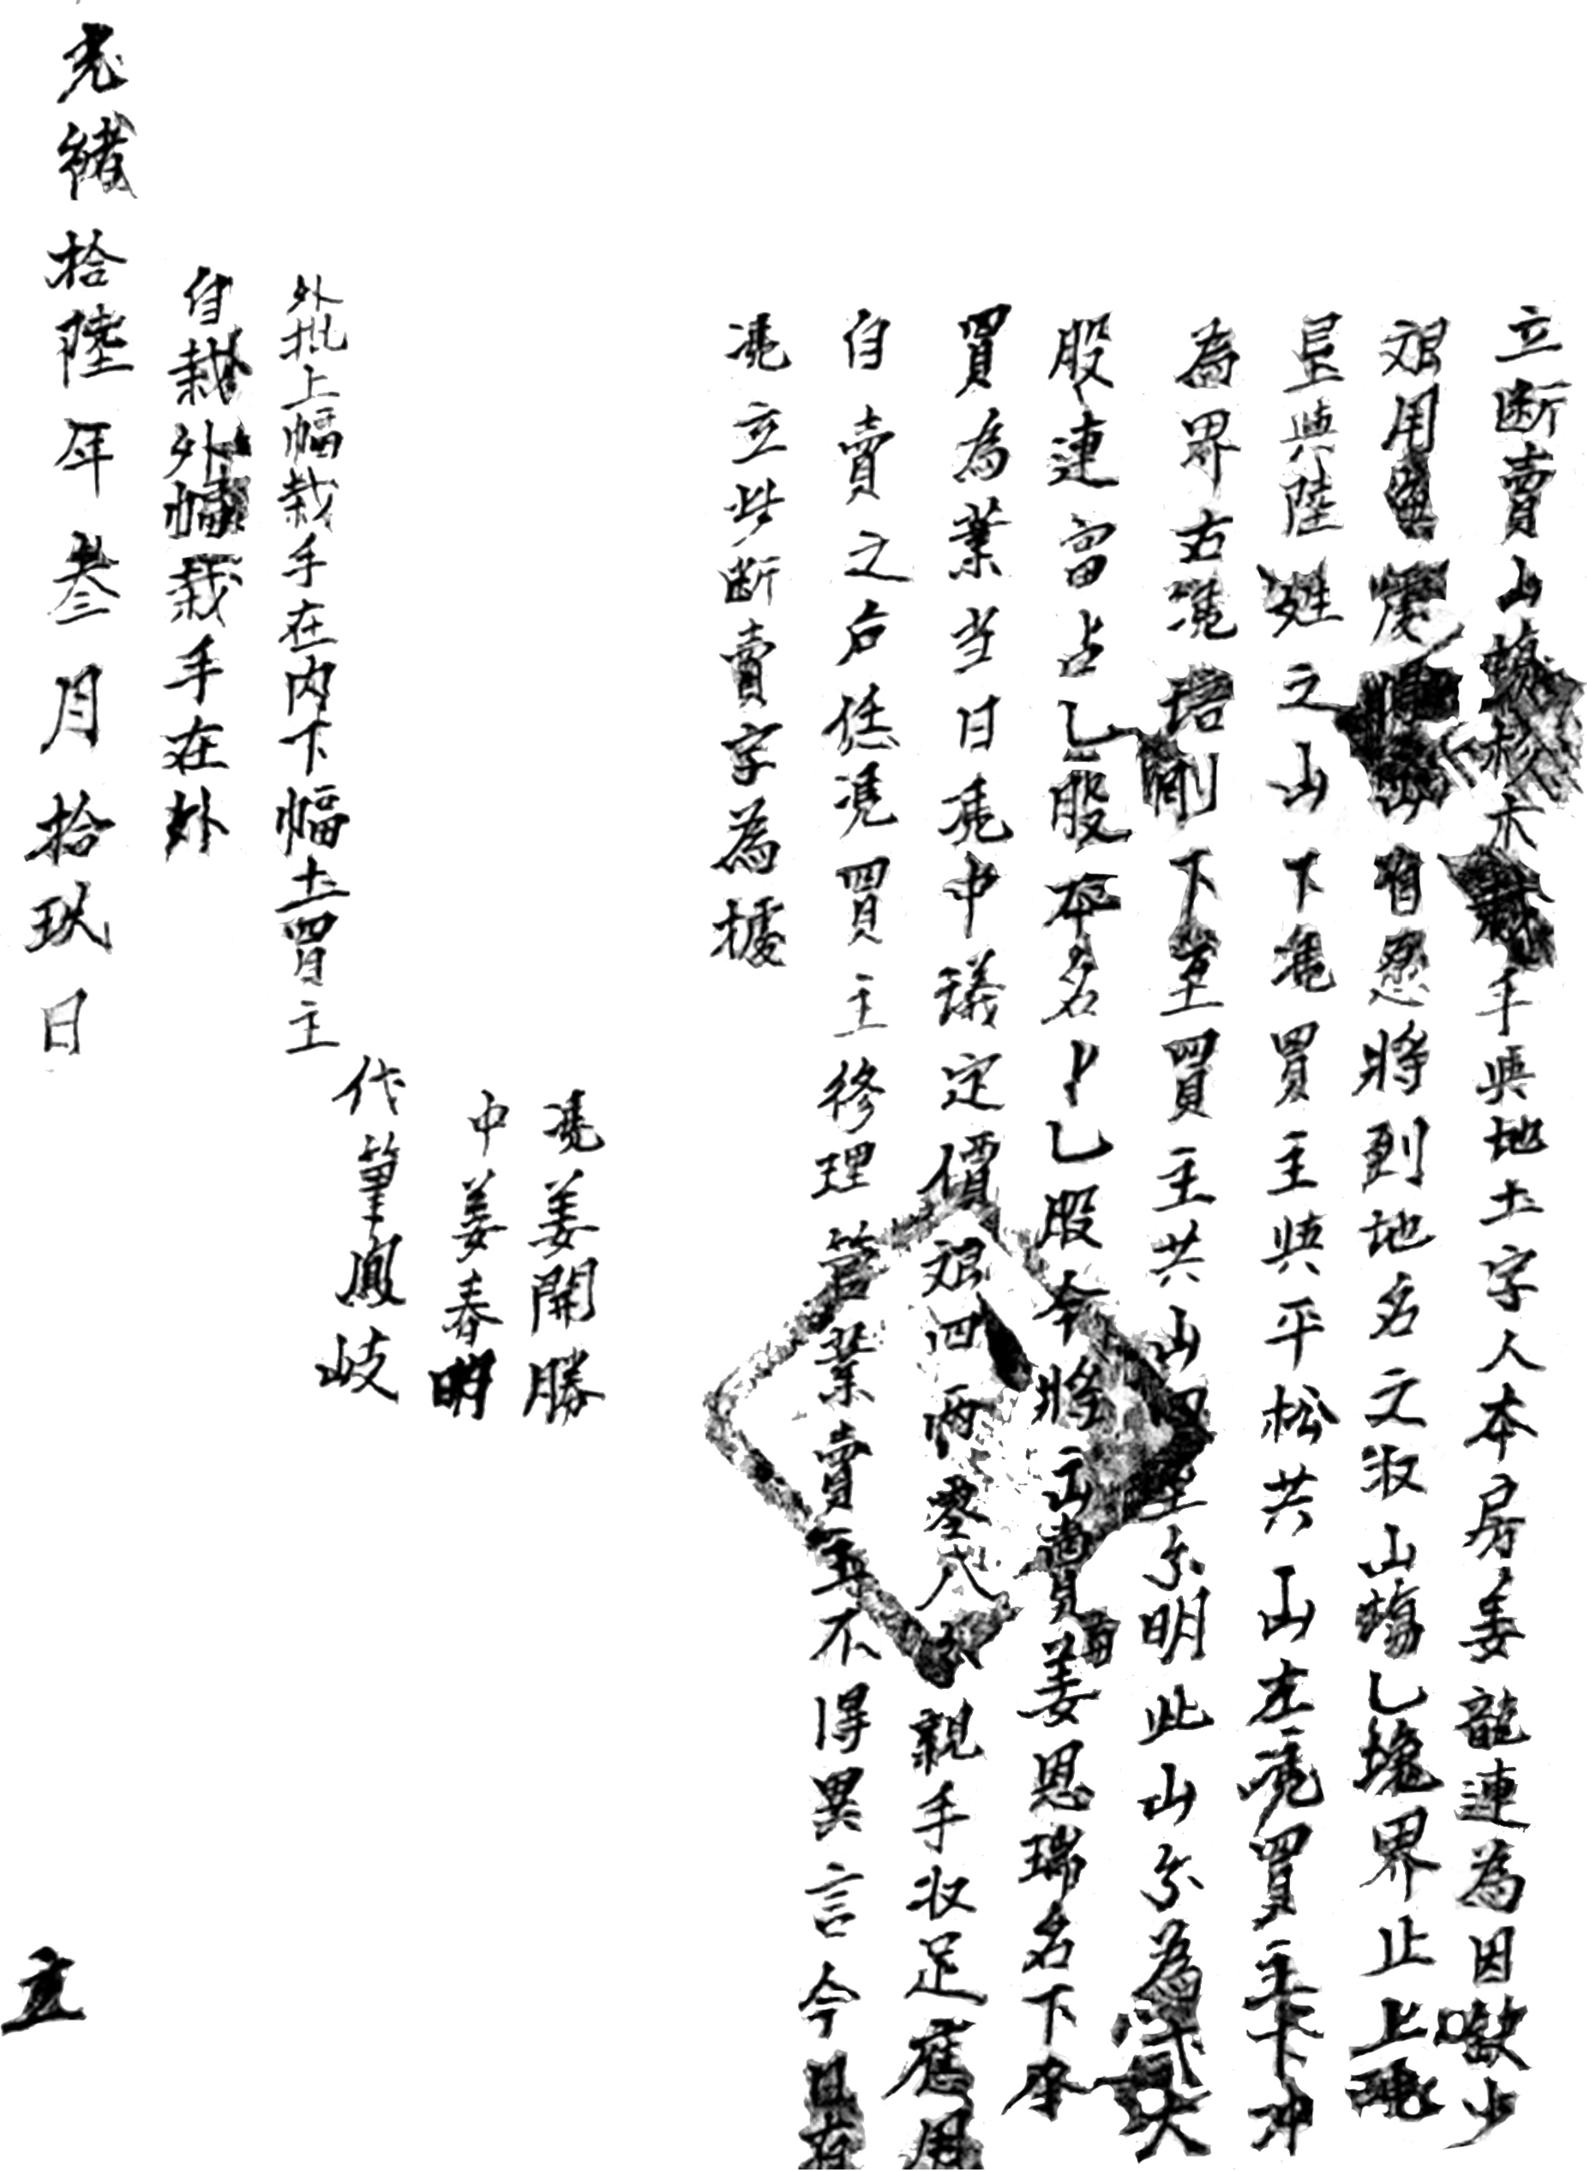 立断賣山塲杉木栽手與地土字人本房姜龍連為因缺少
艮用無處得出自愿將到地名文淑山塲乚塊界止上
至與陸姓之山下凴買主與平松共山左凴買主下冲
為界右凴 剛下至買主共山四至分明此山分為弍大
股連 占乚股本名占乚股今將出賣姜恩瑞名下承
買為業当日凴中議定價艮四両零八分親手收足應用
自賣之后任凴買主修理管業賣主不得異言今
凴立此断賣字為據
凴姜開勝
中姜春明
代筆鳳岐
外批上幅栽手在内下幅土買主
自栽外幅栽手在外
光緒拾陸年叁月拾玖日 立